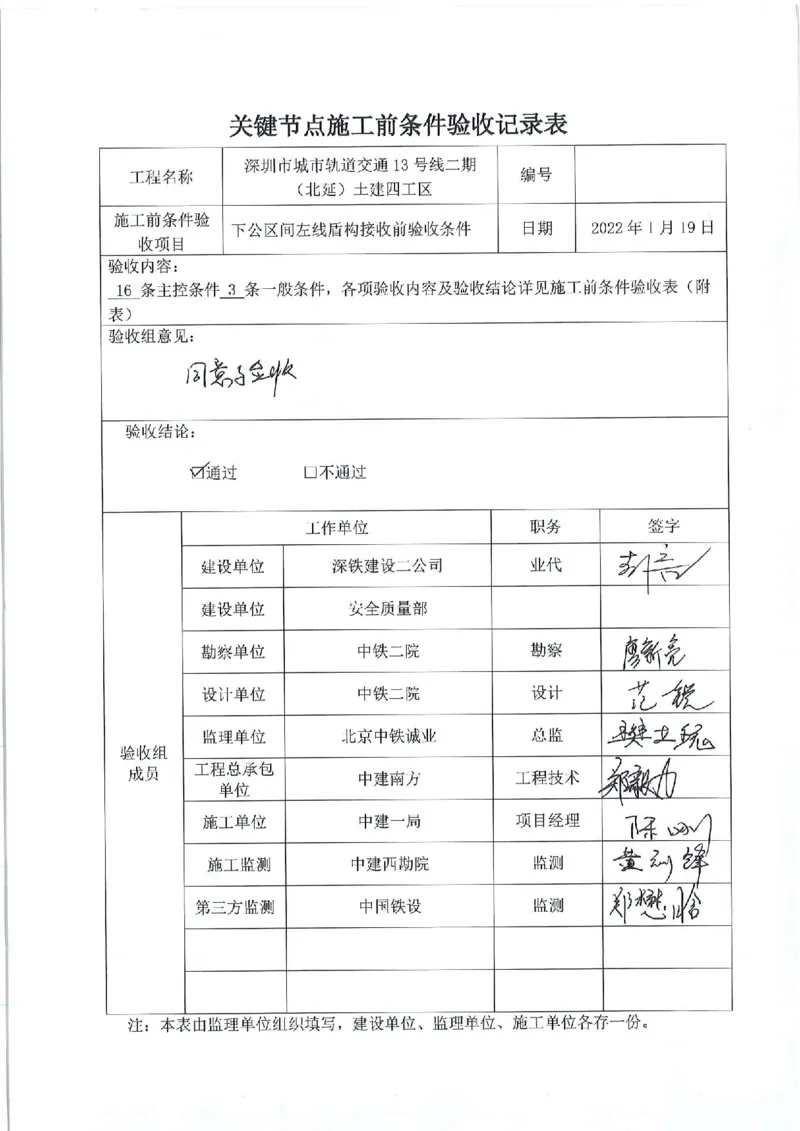 关键节点施工前条件验收记录表
工程名称
深圳市城市轨道交通 13 号线二期
（北延）土建四工区
编号
施工前条件验
收项目
下公区间左线盾构接收前验收条件
日期
2022 年 1 月 19 日
验收内容：
16 条主控条件 3 条一般条件，各项验收内容及验收结论详见施工前条件验收表（附
表）
验收组意见：
同意予验收
验收结论：
☑通过 □不通过
验收组
成员
工作单位 职务 签字
建设单位 深铁建设二公司 业代
建设单位 安全质量部
勘察单位 中铁二院 勘察 廖新亮
设计单位 中铁二院 设计 范锐
监理单位 北京中铁诚业 总监
工程总承包
单位
中建南方 工程技术 郑毅力
施工单位 中建一局 项目经理
施工监测 中建西勘院 监测
第三方监测 中国铁设 监测
注：本表由监理单位组织填写，建设单位、监理单位、施工单位各存一份。